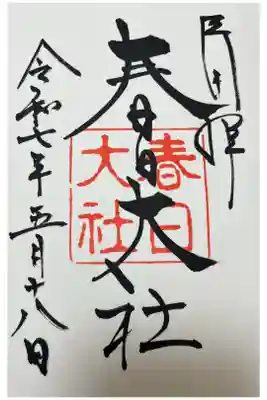 奉拝
春日大社
春日大社
令和七年五月十八日